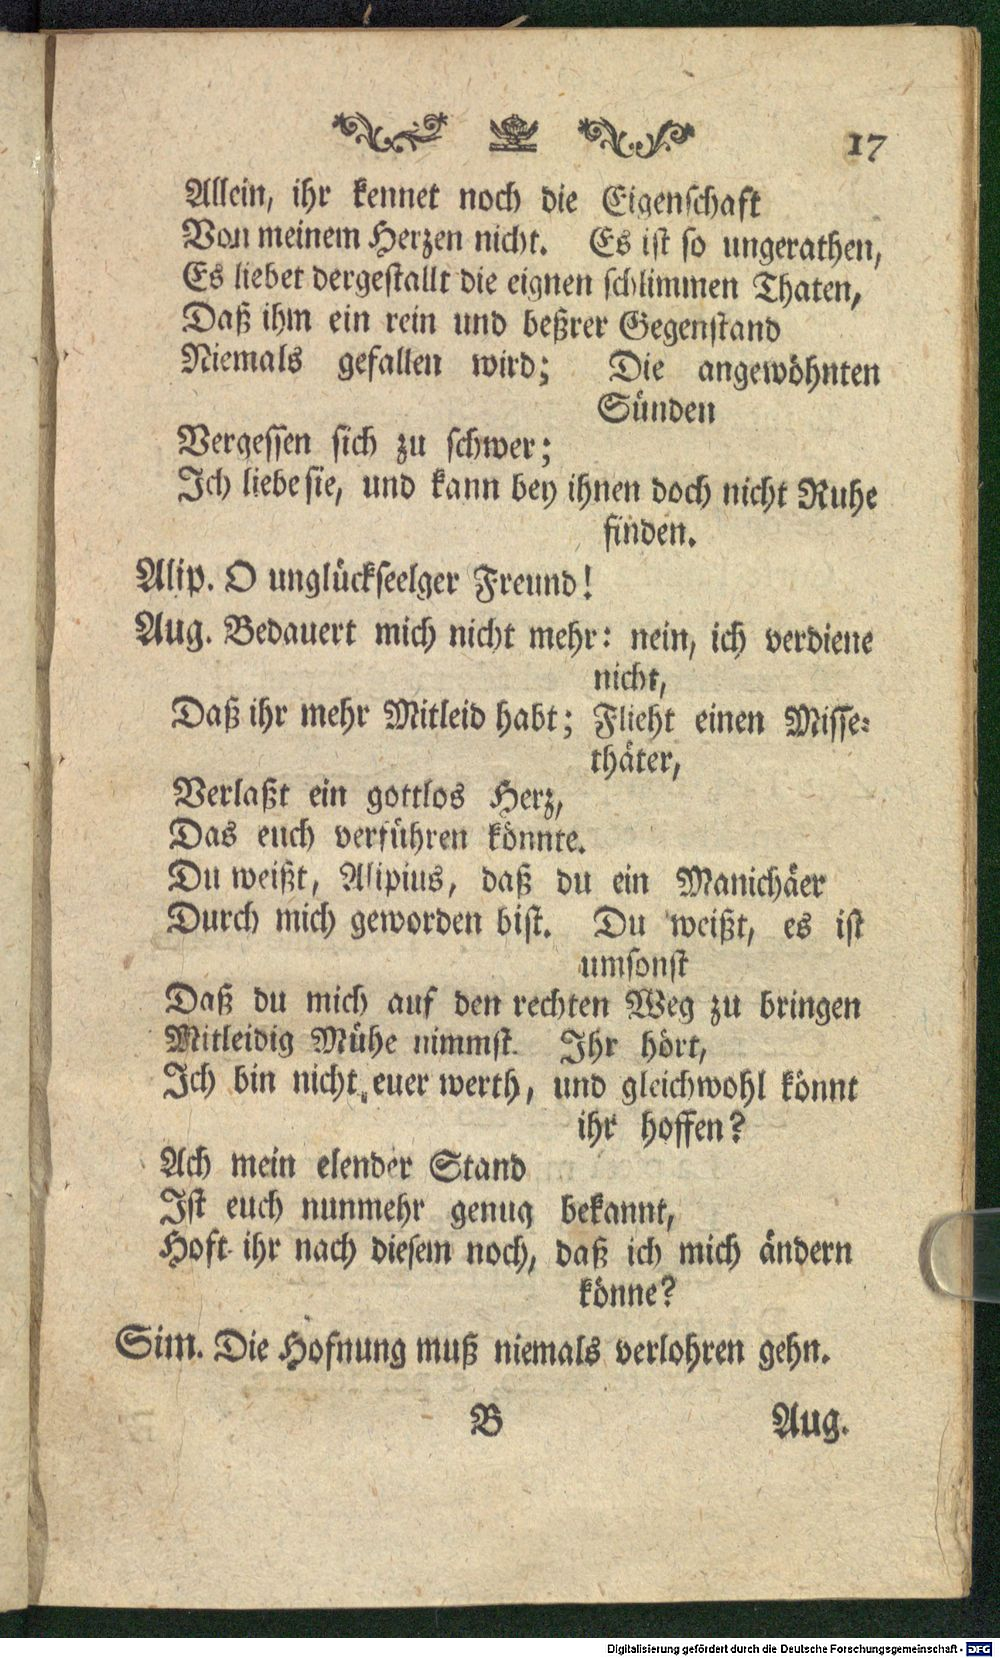 17
Allein, ihr kennet noch die Eigenschaft
Von meinem Herzen nicht. Es ist so ungerathen,
Es liebet dergestallt die eignen schlimmen Thaten,
Daß ihm ein rein und beßrer Gegenstand
Niemals gefallen wird; Die angewöhnten
Sünden
Vergessen sich zu schwer;
Ich liebe sie, und kann bey ihnen doch nicht Ruhe
finden.
Alip. O unglückseelger Freund!
Aug. Bedauert mich nicht mehr: nein, ich verdiene
nicht,
Daß ihr mehr Mitleid habt; Flieht einen Misse-
thäter,
Verlaßt ein gottlos Herz,
Das euch verführen könnte.
Du weißt, Alipius, daß du ein Manichäer
Durch mich geworden bist. Du weißt, es ist
umsonst
Daß du mich auf den rechten Weg zu bringen
Mitleidig Mühe nimmst. Ihr hört,
Ich bin nicht euer werth, und gleichwohl könnt
ihr hoffen?
Ach mein elender Stand
Ist euch nunmehr genug bekannt,
Hoft ihr nach diesem noch, daß ich mich ändern
könne?
Sim. Die Hofnung muß niemals verlohren gehn.
B Aug.
Digitalisierung gefördert durch die Deutsche Forschungsgemeinschaft - DFG